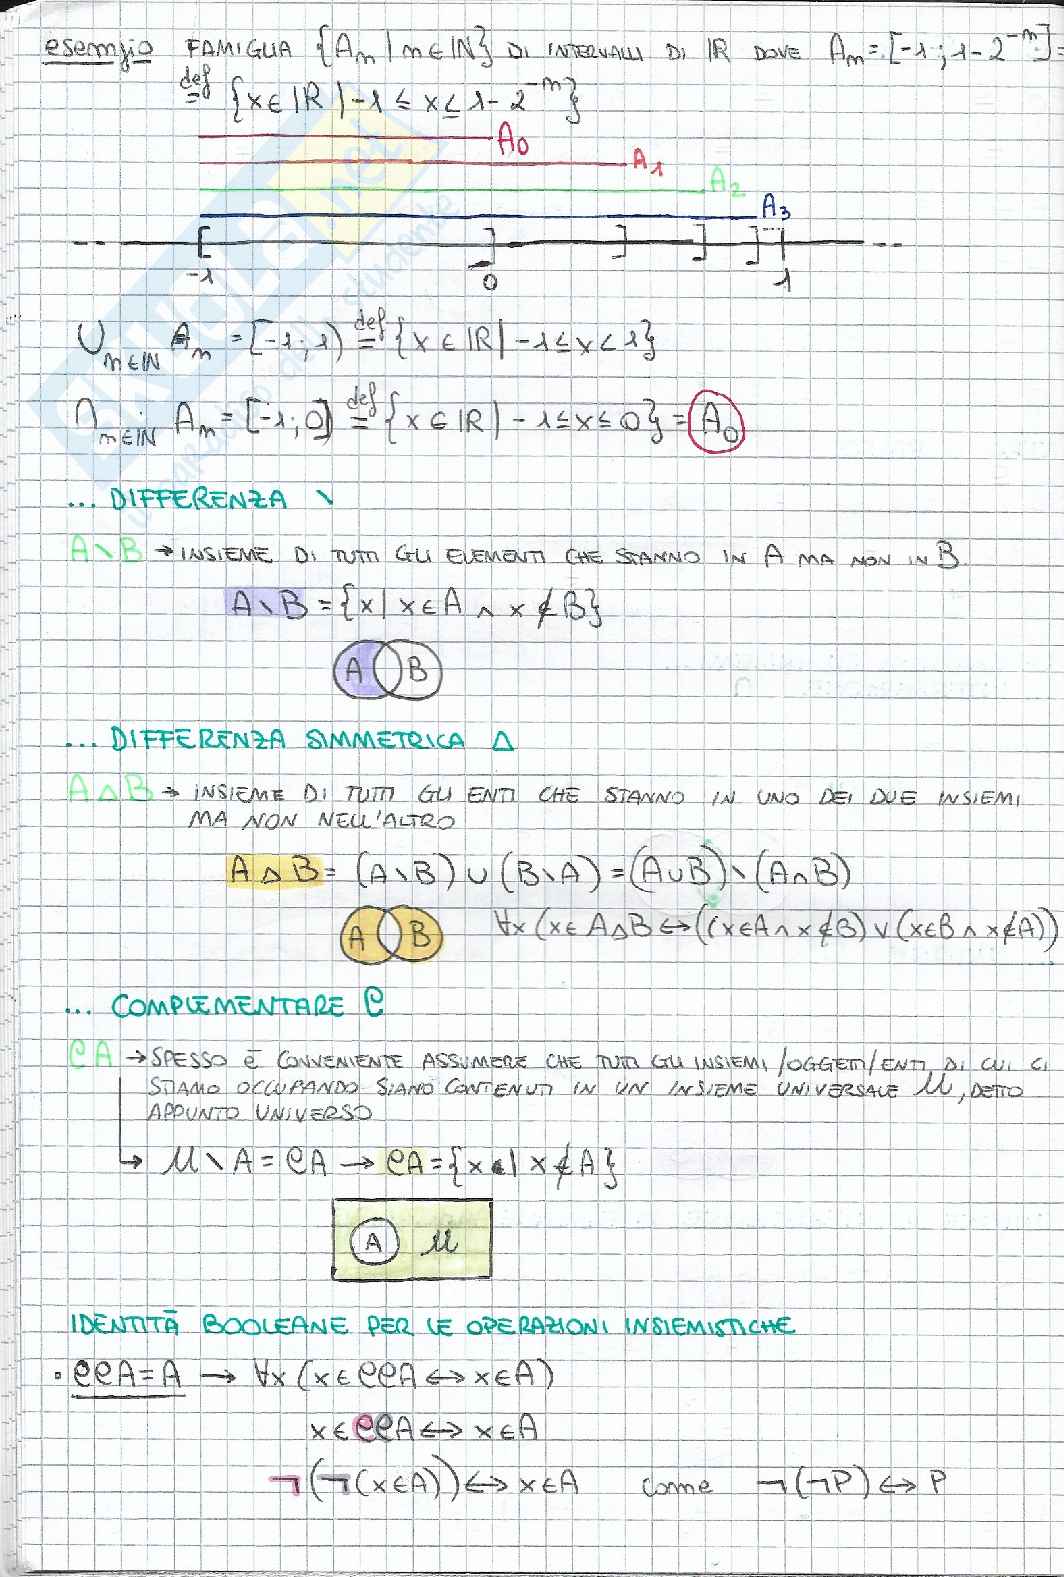 esempio FAMIGLIA {Aₙ | n ∈ ℕ} DI INTERVALLI DI ℝ DOVE Aₙ = [-1; 1-2⁻ⁿ] =
≝ {x ∈ ℝ | -1 ≤ x ≤ 1-2⁻ⁿ}
A₀
A₁
A₂
A₃
-1 0 1
⋃ₙ∈ℕ Aₙ = [-1; 1) ≝ {x ∈ ℝ | -1 ≤ x < 1}
⋂ₙ∈ℕ Aₙ = [-1; 0] ≝ {x ∈ ℝ | -1 ≤ x ≤ 0} = A₀
... DIFFERENZA \
A\B → INSIEME DI TUTTI GLI ELEMENTI CHE STANNO IN A MA NON IN B.
A\B = {x | x ∈ A ∧ x ∉ B}
A B
... DIFFERENZA SIMMETRICA Δ
A Δ B → INSIEME DI TUTTI GLI ENTI CHE STANNO IN UNO DEI DUE INSIEMI
MA NON NELL'ALTRO
A Δ B = (A\B) ∪ (B\A) = (A∪B) \ (A∩B)
A B ∀x (x∈AΔB ↔ ((x∈A ∧ x∉B) ∨ (x∈B ∧ x∉A))
... COMPLEMENTARE ∁
∁A → SPESSO È CONVENIENTE ASSUMERE CHE TUTTI GLI INSIEMI/OGGETTI/ENTI DI CUI CI
STIAMO OCCUPANDO SIANO CONTENUTI IN UN INSIEME UNIVERSALE U, DETTO
APPUNTO UNIVERSO
↳ U \ A = ∁A → ∁A = {x | x ∉ A}
A U
IDENTITÀ BOOLEANE PER LE OPERAZIONI INSIEMISTICHE
• ∁∁A = A → ∀x (x ∈ ∁∁A ↔ x ∈ A)
x ∈ ∁∁A ↔ x ∈ A
¬(¬(x∈A)) ↔ x∈A come ¬(¬P) ↔ P